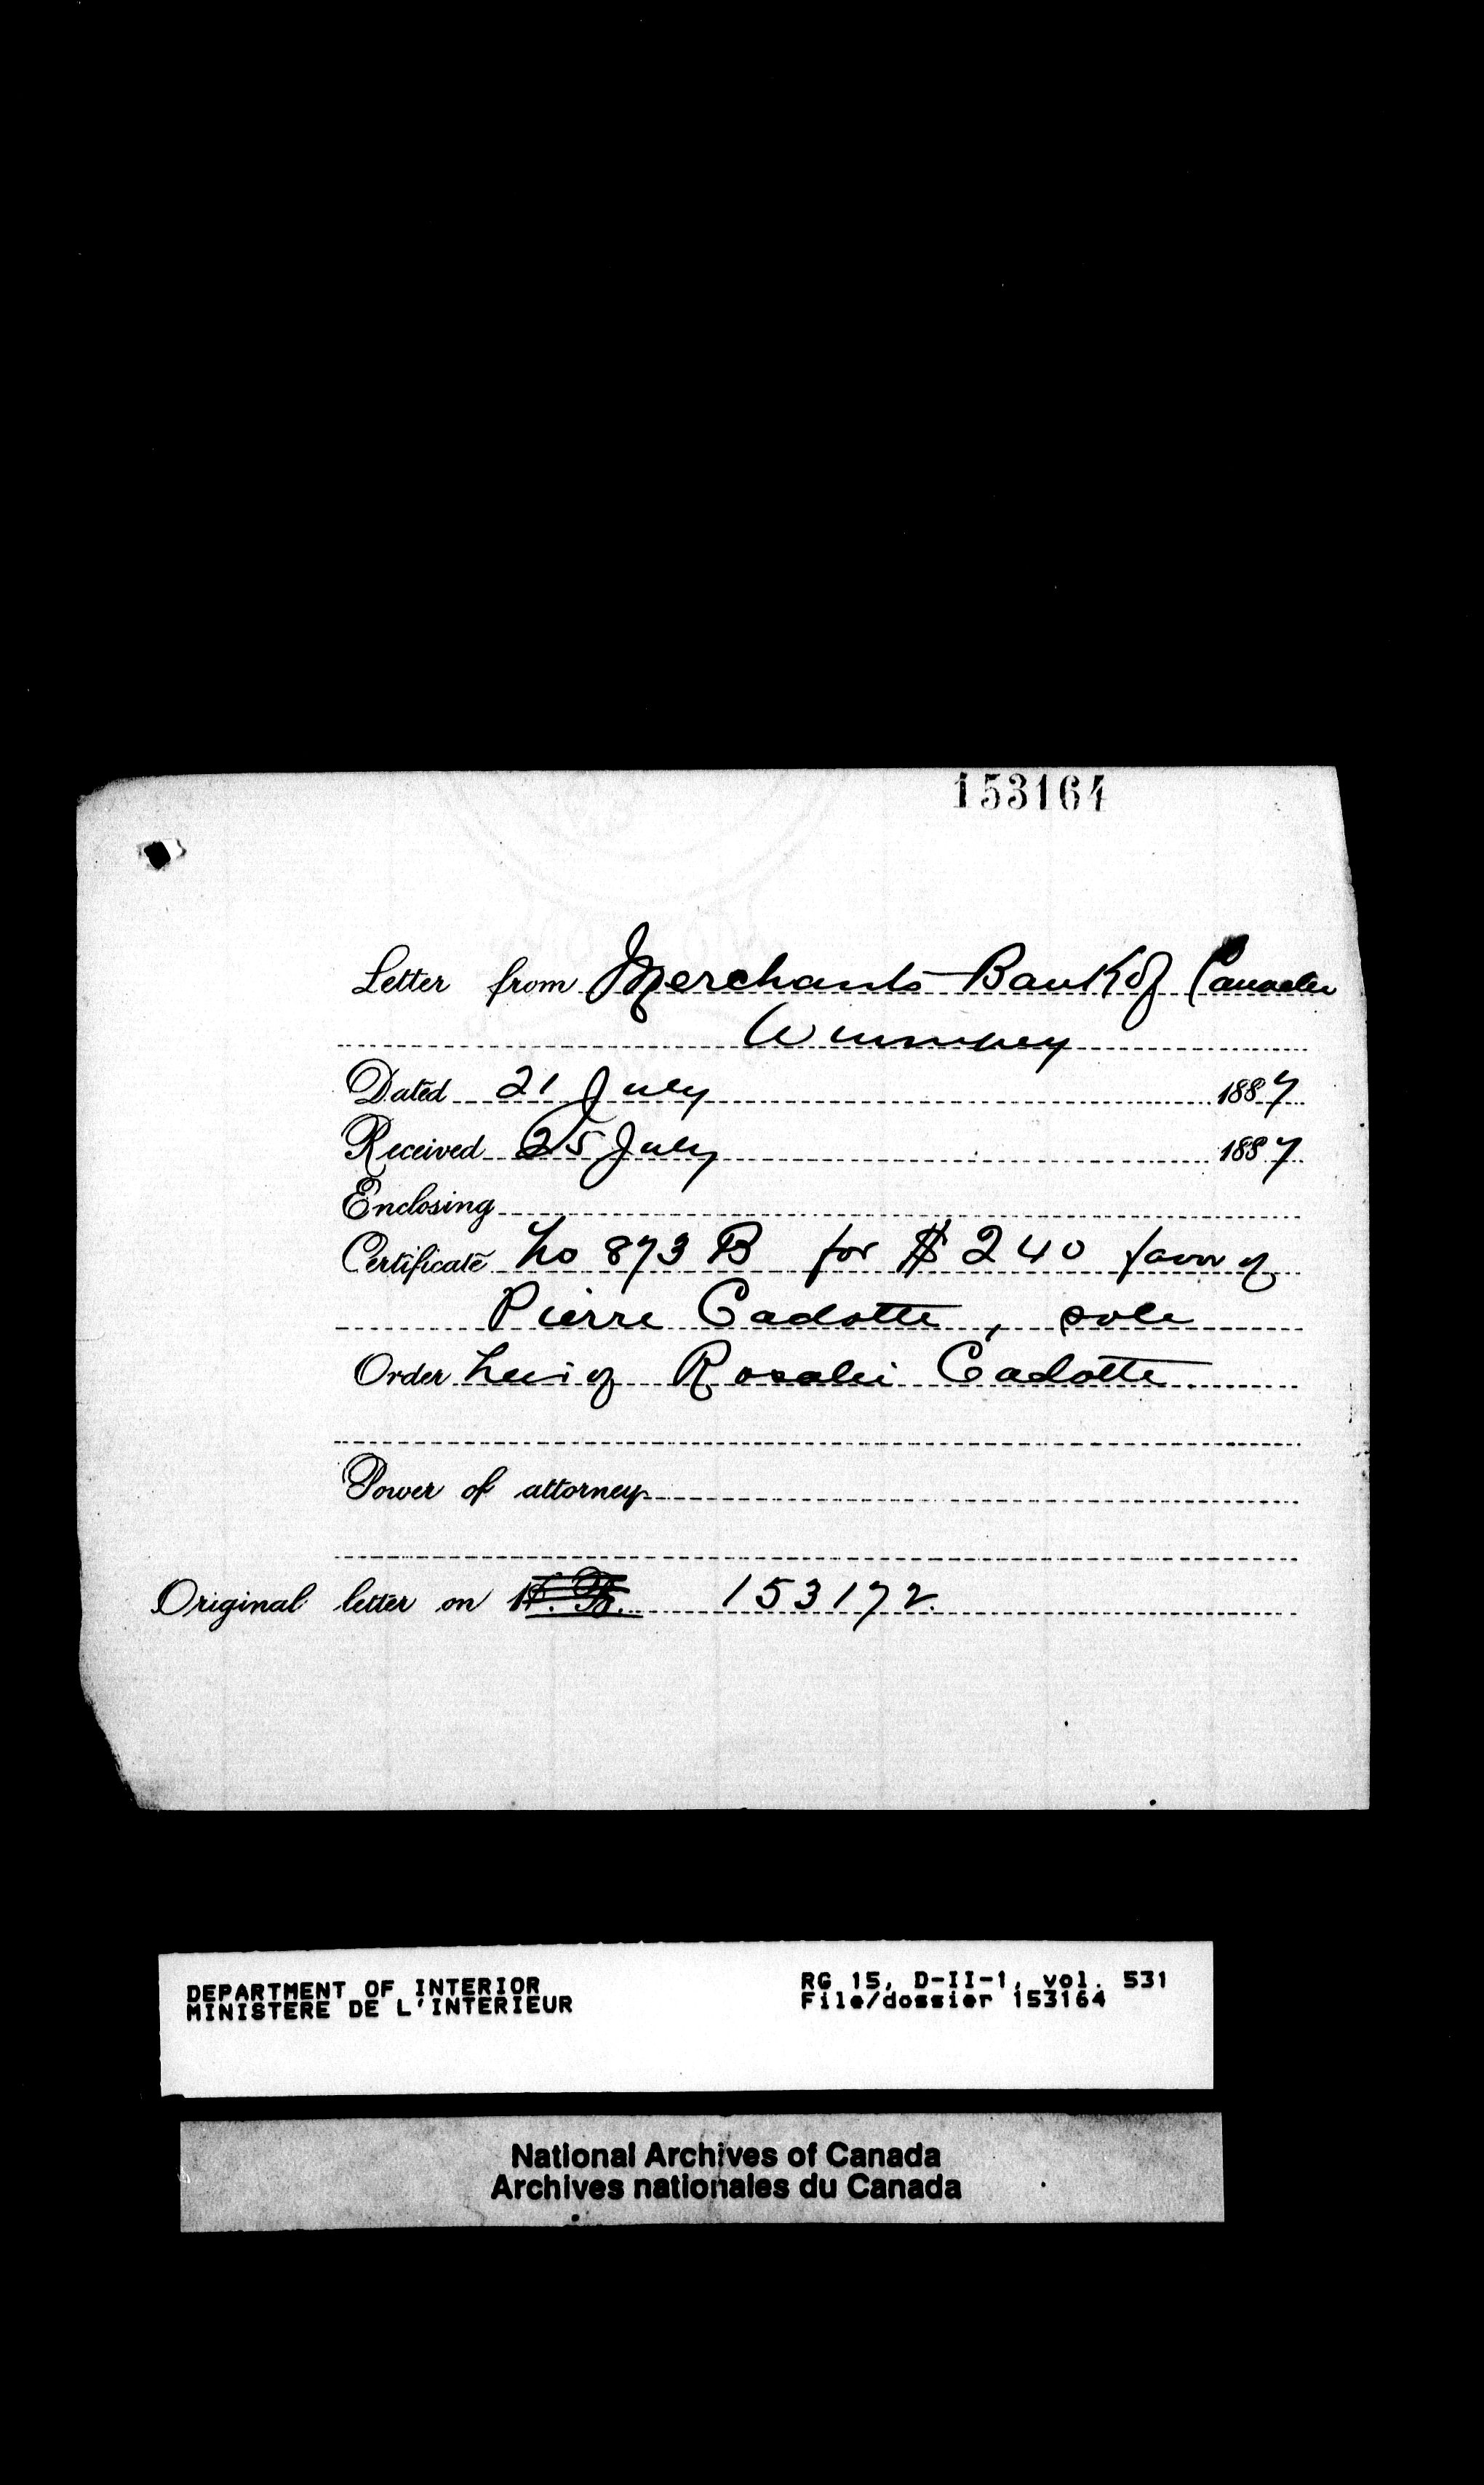 153164
Letter from Merchants Bank of Canada
Winnipeg
Dated 21 July 1887
Received 25 July 1887
Enclosing
Certificate No 873 B for $240 favor of
Pierre Cadotte, sole
Order heir of Rosalie Cadotte
Power of attorney
Original letter on 153172.
DEPARTMENT OF INTERIOR
MINISTERE DE L'INTERIEUR
RG 15, D-II-1, vol. 531
File/dossier 153164
National Archives of Canada
Archives nationales du Canada